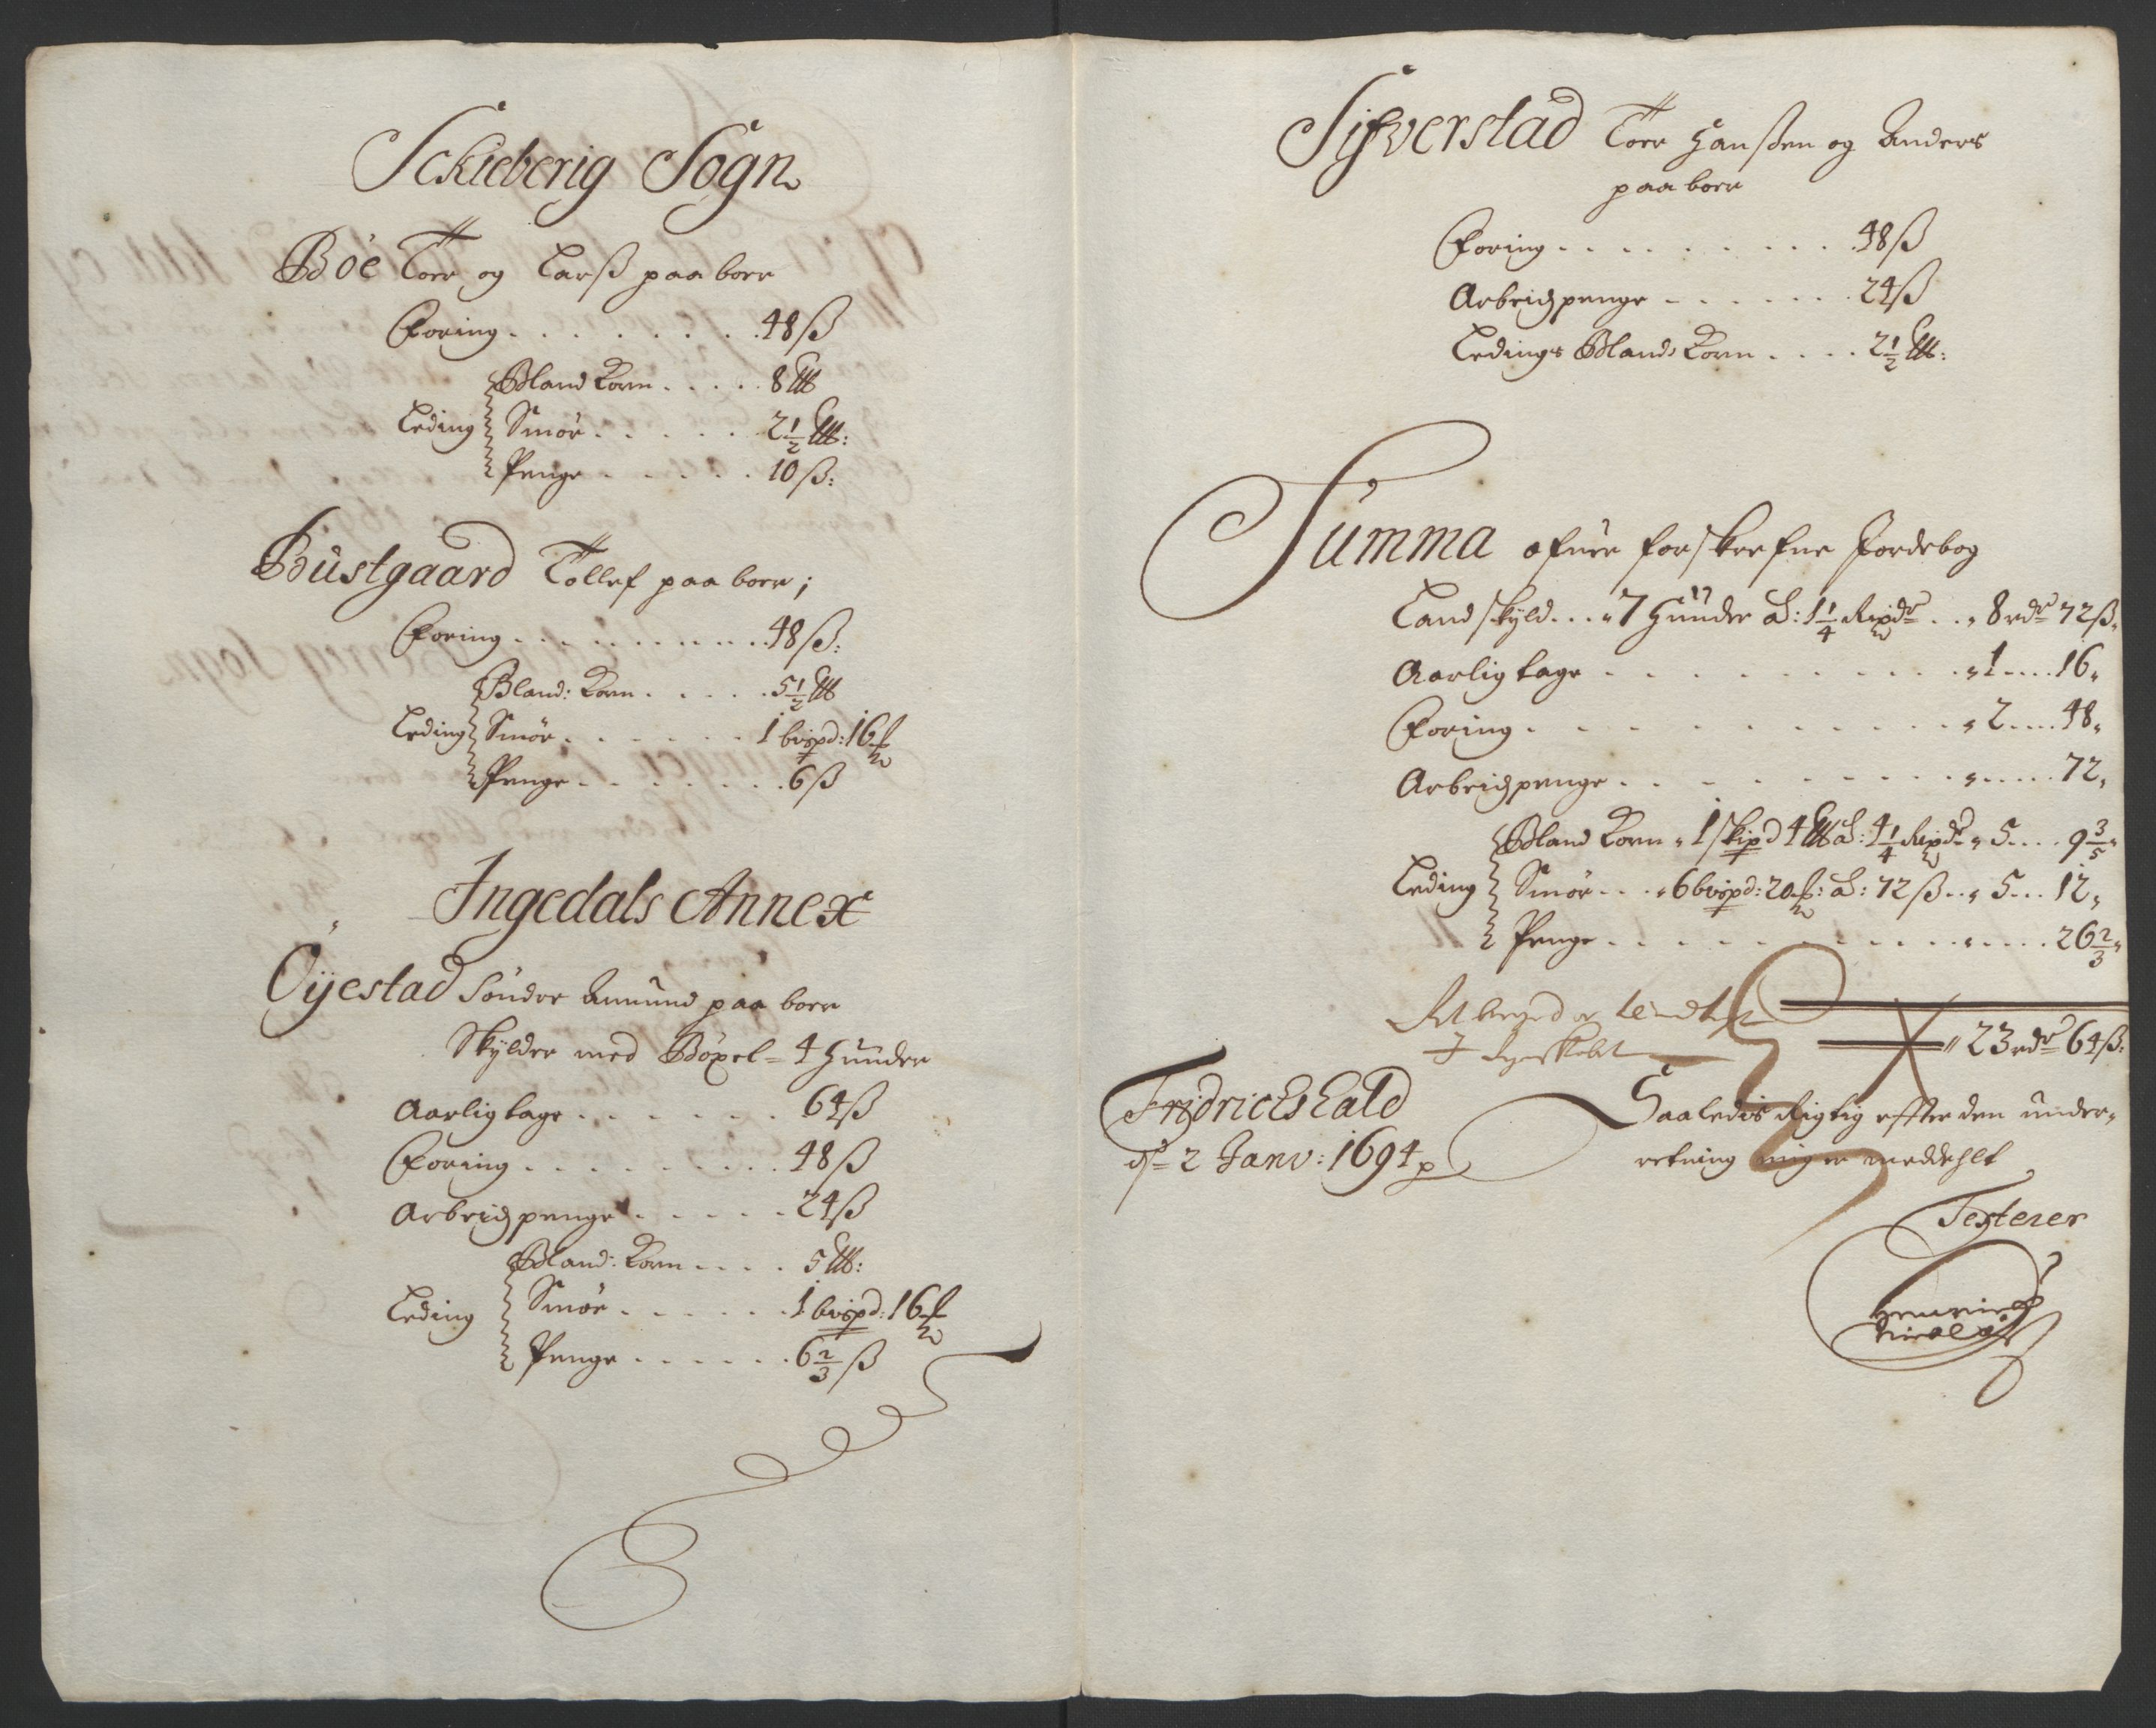 Sckieberig Sogn
Böe Torr og Larß paaborr
Foring . . . . . . . . 48 ß
Leding
Bland Korn . . . . . 8 lb
Smör . . . . . . 2½ lb:
Penge . . . . . 10 ß:
Büstgaard Tollef paa borr;
Foring . . . . . . . . . 48 ß:
Leding
Bland: Korn . . . . . 5½ lb
Smör . . . . . . 1 bvispd: 16
Penge . . . . . . . 6 ß
Ingedals Annex
Oÿestad Sönder Amünd paa borr
Skÿlder med Böxel = 4 Hünder
Aarlig tage . . . . . . 64 ß
Foring . . . . . . . . . 48 ß
Arbeidzpenge . . . . . 24 ß
Leding
Bland: Korn . . . . 5 lb:
Smör . . . . . . 1 bvispd: 16
Penge . . . . . . 6⅔ ß
Torr Hanßen og Anders
paa borr
Foring . . . . . . . . . 48 ß
Arbeidzpenge . . . . . . 24 ß
Ledings Bland: Korn . . . . 2½ lb:
Summa ofuen forskrefne Jordebog
Landskÿld . . . 7 Hünder à: 1¼ Rixdr . . 8 rdr 72 ß
Aarlig tage . . . . . . . . . . 1 . . . . 16
Foring . . . . . . . . . . . 2 . . . . 48
Arbeidzpenge . . . . . . . . . . . . . . 72
Leding
Bland Korn 1 skipd 4 lb à: 4¼ Rixdr 5 . . . . 9 3/5
Smör . . . 6 bvispd: 20 : à: 72 ß . . 5 . . . 12
Penge . . . . . . . . . . . . . . . 26⅔
23 rdr 64 ß:
Fridrichs Hald
dn 2 Janv: 1694
Saaledis Rigtig effter den under-
retning mig er meddehlt
Testerer